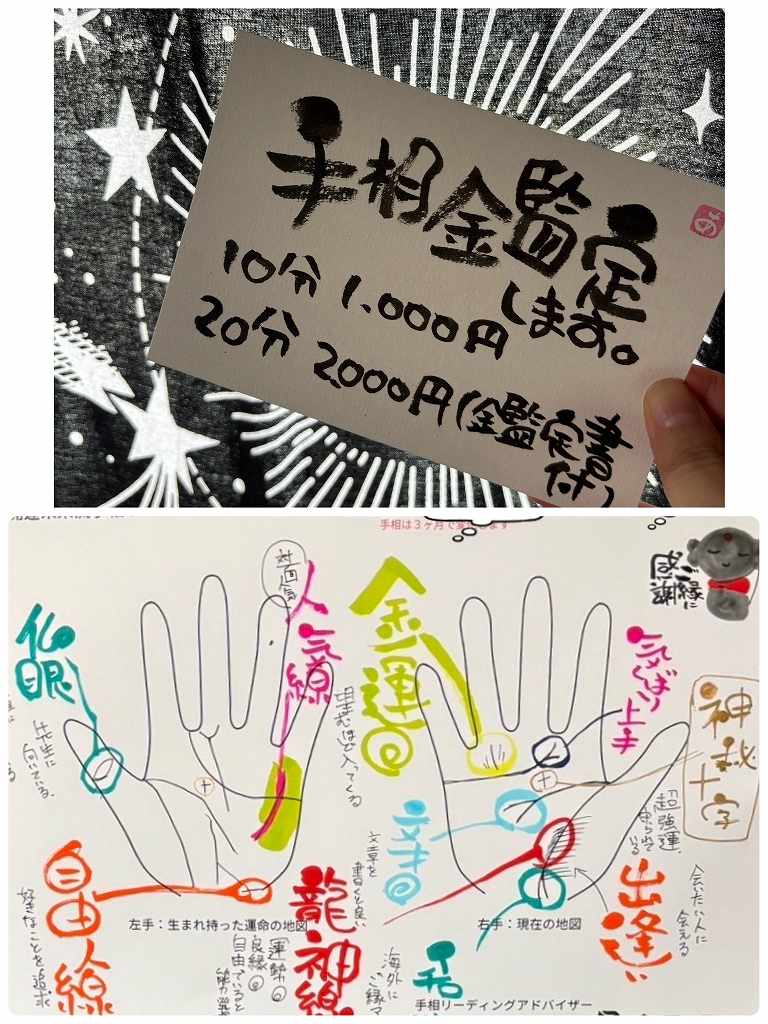 手相鑑定
します。
10分 1,000円
20分 2,000円(鑑定書付)
手相は3ヶ月で変化します
ご縁に
感謝
対面気
人気線
金運◎
仏眼
気くばり上手
神秘十字
先生に
向いている。
望むほど入ってくる
「超強運」
守られている
文才◎
文章を
書くと良い
自由人線
好きなことを追求
龍神線
出逢い
会いたい人に
会える
左手:生まれ持った運命の地図
右手:現在の地図
運動◎
良縁◎
自由でいると
海外に
ご縁
手相リーディングアドバイザー